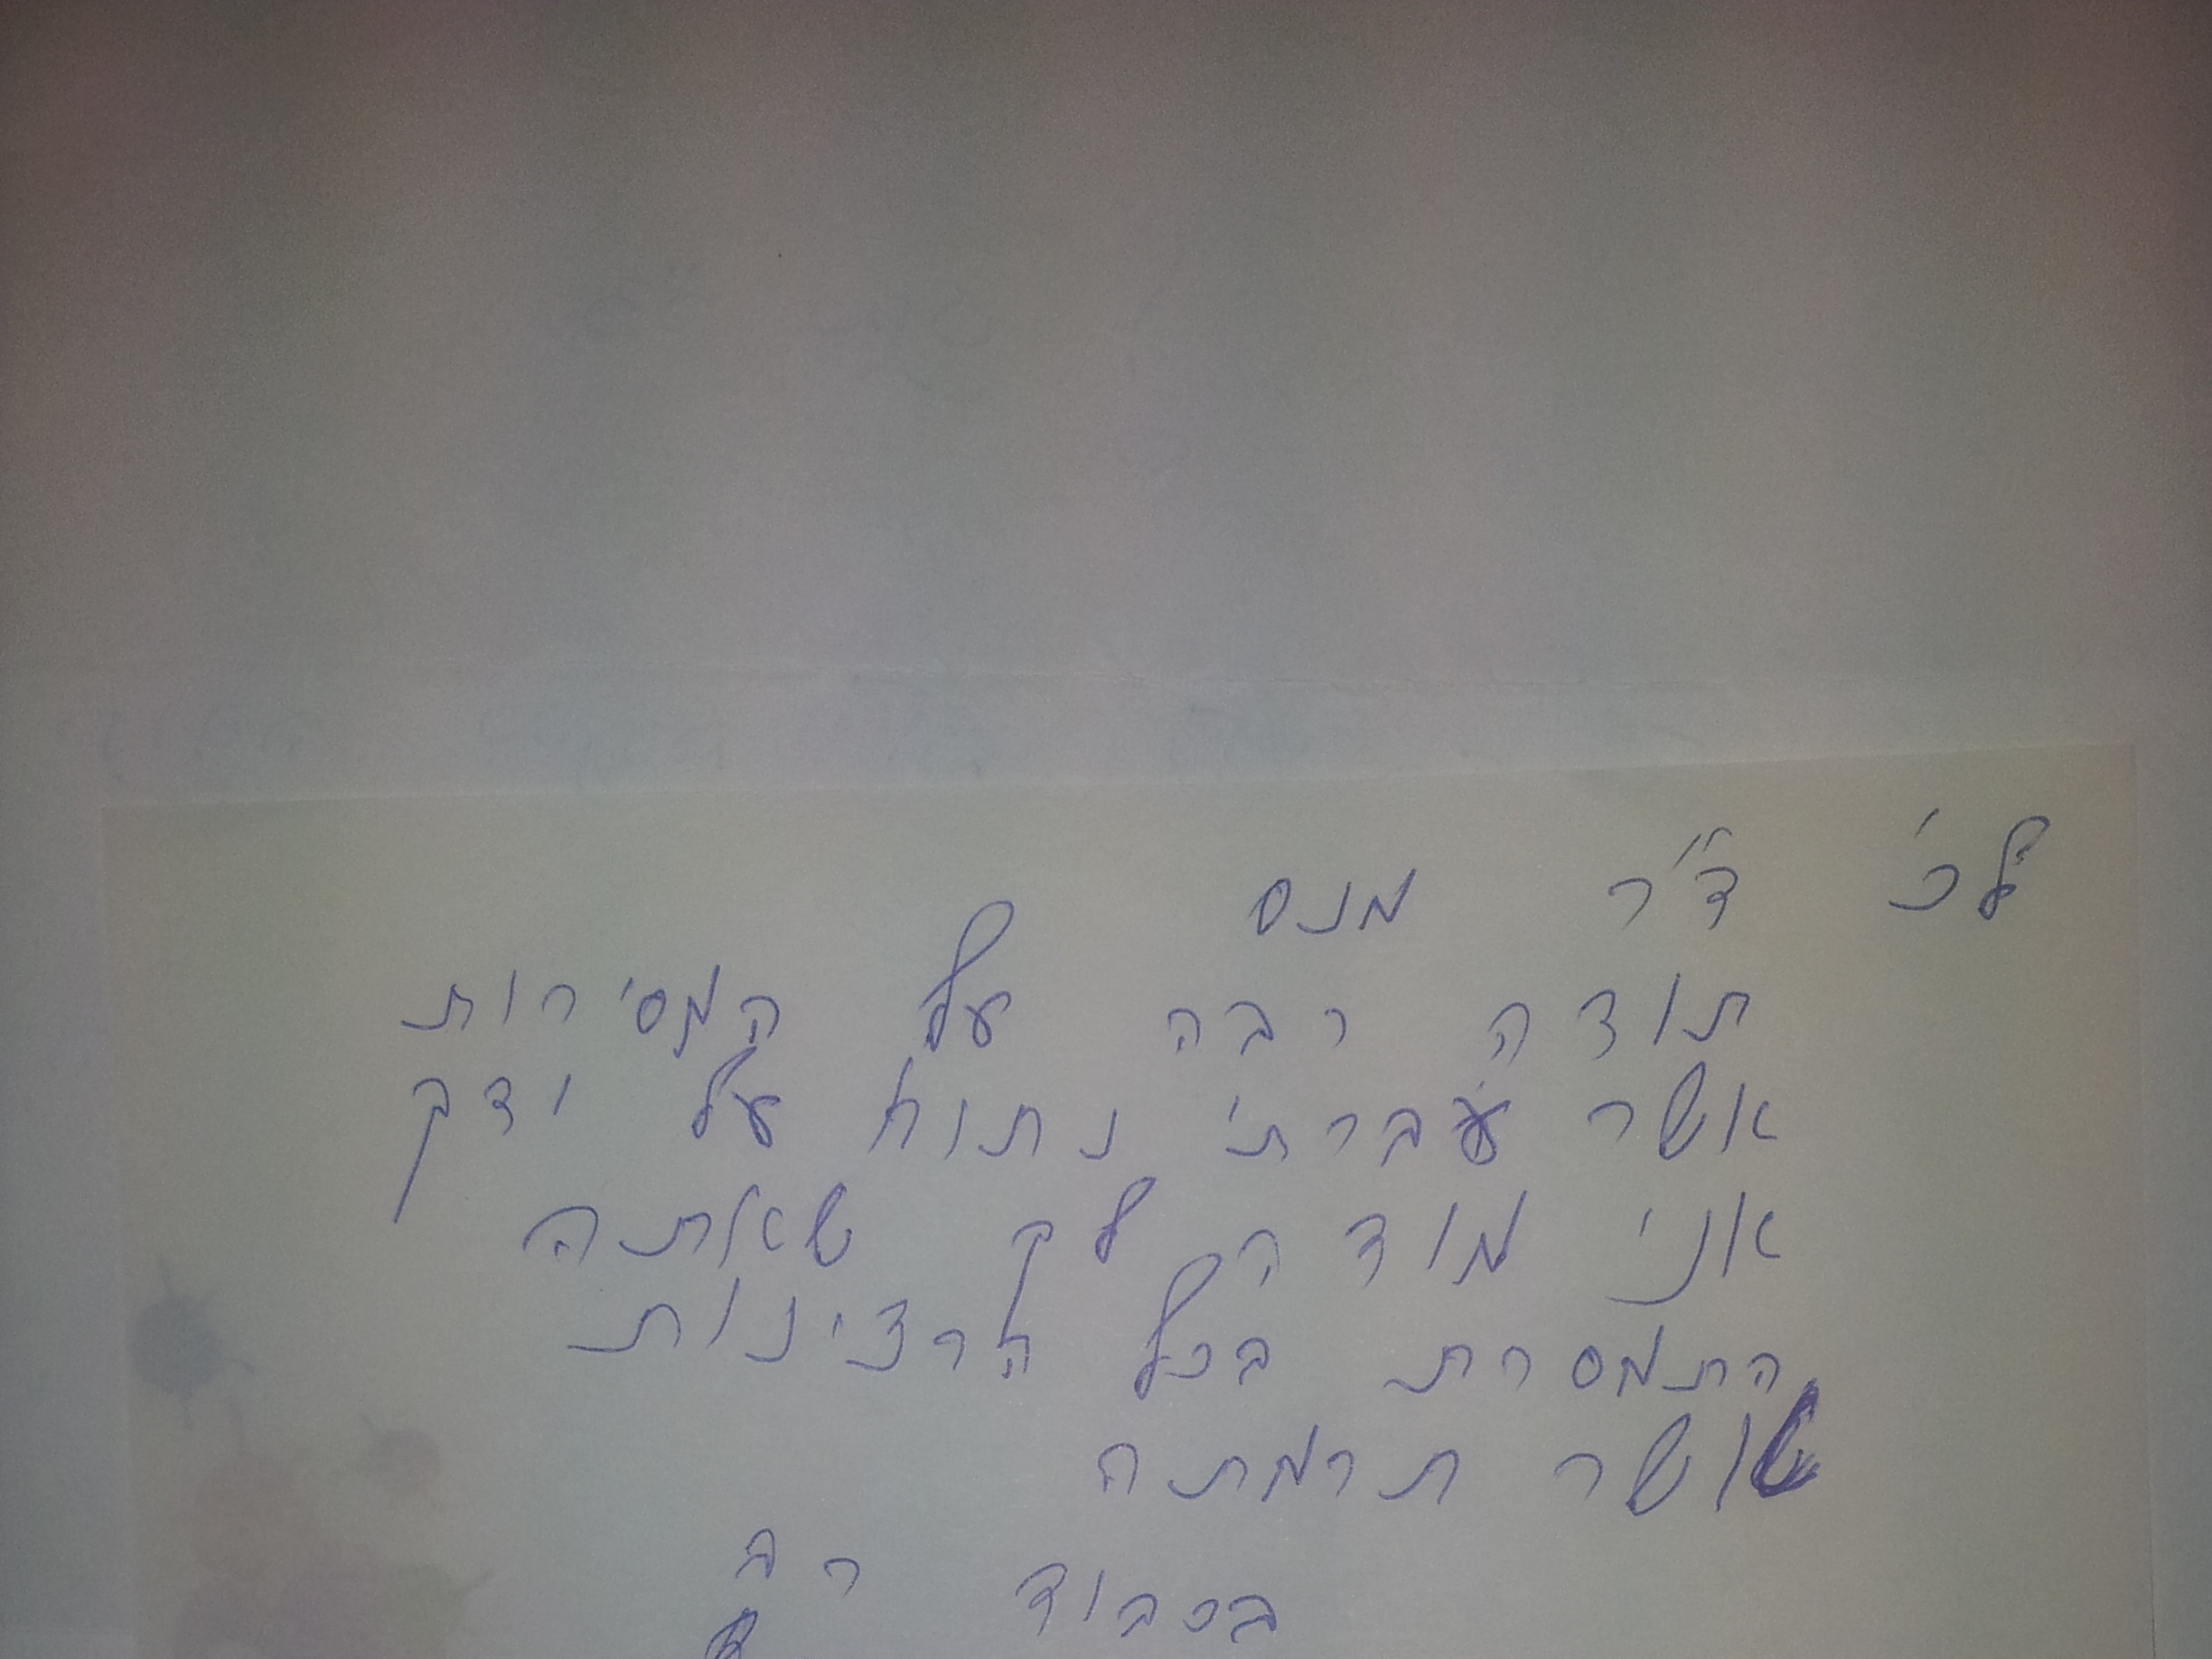 לכ' ד"ר מנס
תודה רבה על המסירות
אשר עברתי נתוח על ודק
אני מודה לך שאתה
התמסרת בכל הרצינות
אשר תרמתה
בכבוד רב